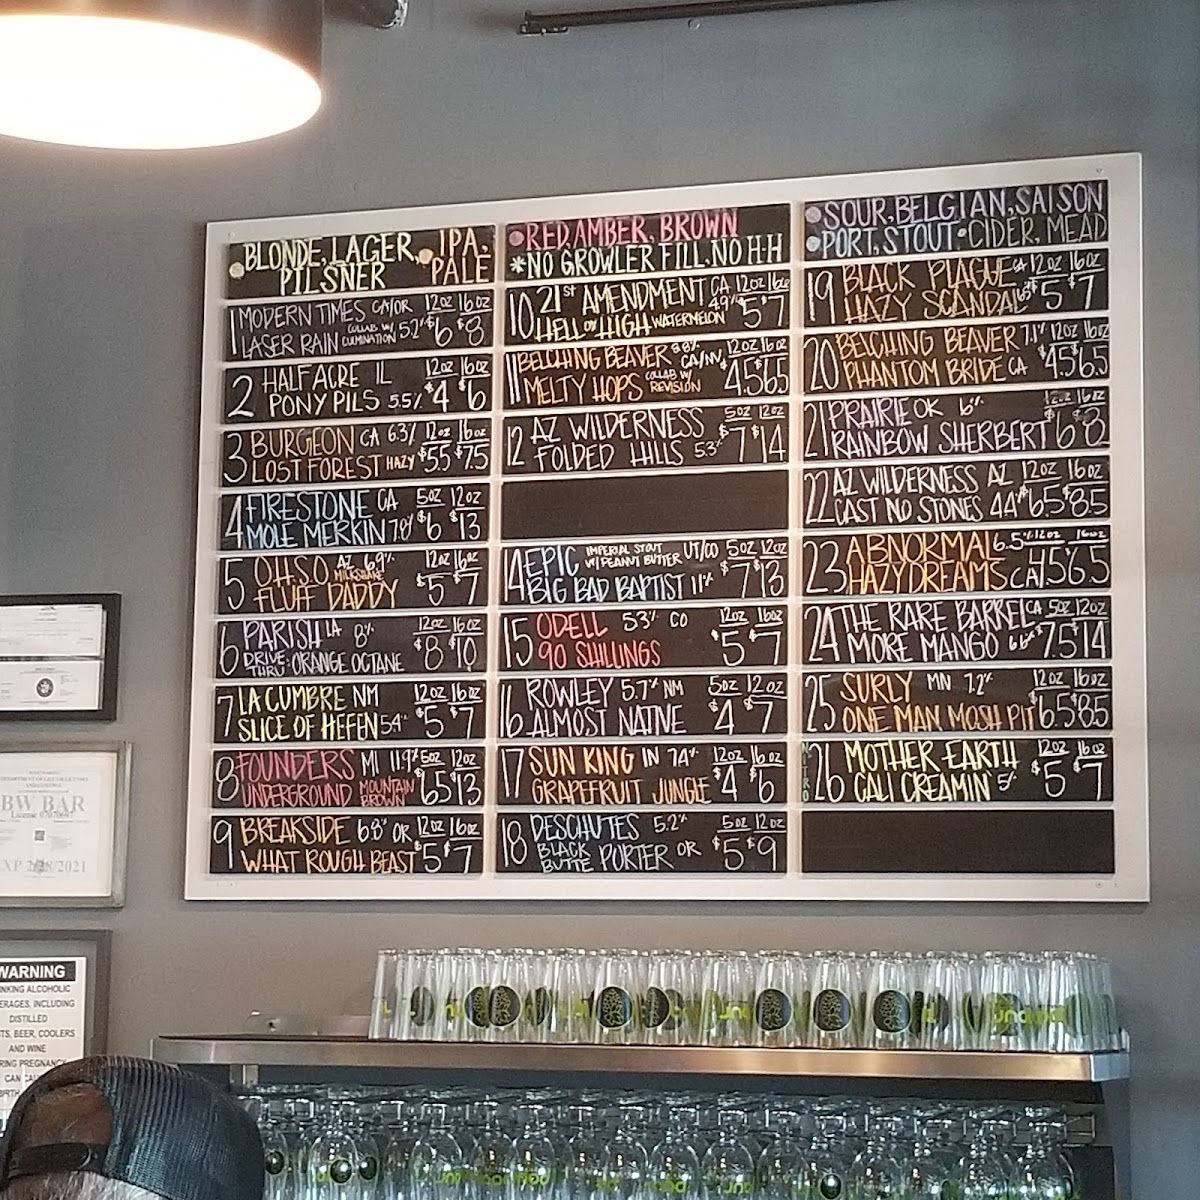 BLONDE, LAGER, IPA,
PILSNER PALE
1 MODERN TIMES CA/OR 12oz 16oz
LASER RAIN COLLAB W/ CULMINATION 5.2% $6 $8
2 HALF ACRE IL 12oz 16oz
PONY PILS 5.5% $4 $6
3 BURGEON CA 6.3% 12oz 16oz
LOST FOREST HAZY $5.5 $7.5
4 FIRESTONE CA 5oz 12oz
MOLE MERKIN 7.8% $6 $13
5 O.H.S.O. AZ 6.9% 12oz 16oz
FLUFF DADDY MILKSHAKE $5 $7
6 PARISH LA 8% 12oz 16oz
DRIVE THRU: ORANGE OCTANE $8 $10
7 LA CUMBRE NM 12oz 16oz
SLICE OF HEFEN 5.4% $5 $7
8 FOUNDERS MI 11.9% 5oz 12oz
UNDERGROUND MOUNTAIN BROWN $6.5 $13
9 BREAKSIDE 6.8% OR 12oz 16oz
WHAT ROUGH BEAST $5 $7
RED, AMBER, BROWN
*NO GROWLER FILL, NO H·H
10 21st AMENDMENT CA 12oz 16oz
HELL OR HIGH WATERMELON 4.9% $5 $7
11 BELCHING BEAVER 8.8% CA/NV 12oz 16oz
MELTY HOPS COLLAB W/ REVISION $4.5 $6.5
12 AZ WILDERNESS 5oz 12oz
FOLDED HILLS 5.3% $7 $14
14 EPIC IMPERIAL STOUT W/ PEANUT BUTTER UT/CO 5oz 12oz
BIG BAD BAPTIST 11% $7 $13
15 ODELL 5.3% CO 12oz 16oz
90 SHILLINGS $5 $7
16 ROWLEY 5.7% NM 5oz 12oz
ALMOST NATIVE $4 $7
17 SUN KING IN 7.4% 12oz 16oz
GRAPEFRUIT JUNGLE $4 $6
18 DESCHUTES 5.2% 5oz 12oz
BLACK BUTTE PORTER OR $5 $9
SOUR, BELGIAN, SAISON
PORT, STOUT CIDER, MEAD
19 BLACK PLAGUE CA 12oz 16oz
HAZY SCANDAL $5 $7
20 BELCHING BEAVER 7.1% 12oz 16oz
PHANTOM BRIDE CA $4.5 $6.5
21 PRAIRIE OK 6% 12oz 16oz
RAINBOW SHERBERT $6 $8
22 AZ WILDERNESS AZ 12oz 16oz
CAST NO STONES 4.4% $6.5 $8.5
23 ABNORMAL 6.5% 12oz 16oz
HAZY DREAMS CA $4.5 $6.5
24 THE RARE BARREL CA 5oz 12oz
MORE MANGO 6.6% $7.5 $14
25 SURLY MN 7.2% 12oz 16oz
ONE MAN MOSH PIT $6.5 $8.5
NITRO 26 MOTHER EARTH 12oz 16oz
CALI CREAMIN' 5% $5 $7
BW BAR
License 07070697
EXP 2/28/2021
WARNING
DISTILLED
BEER, COOLERS
AND WINE
PREGNANCY
CAN